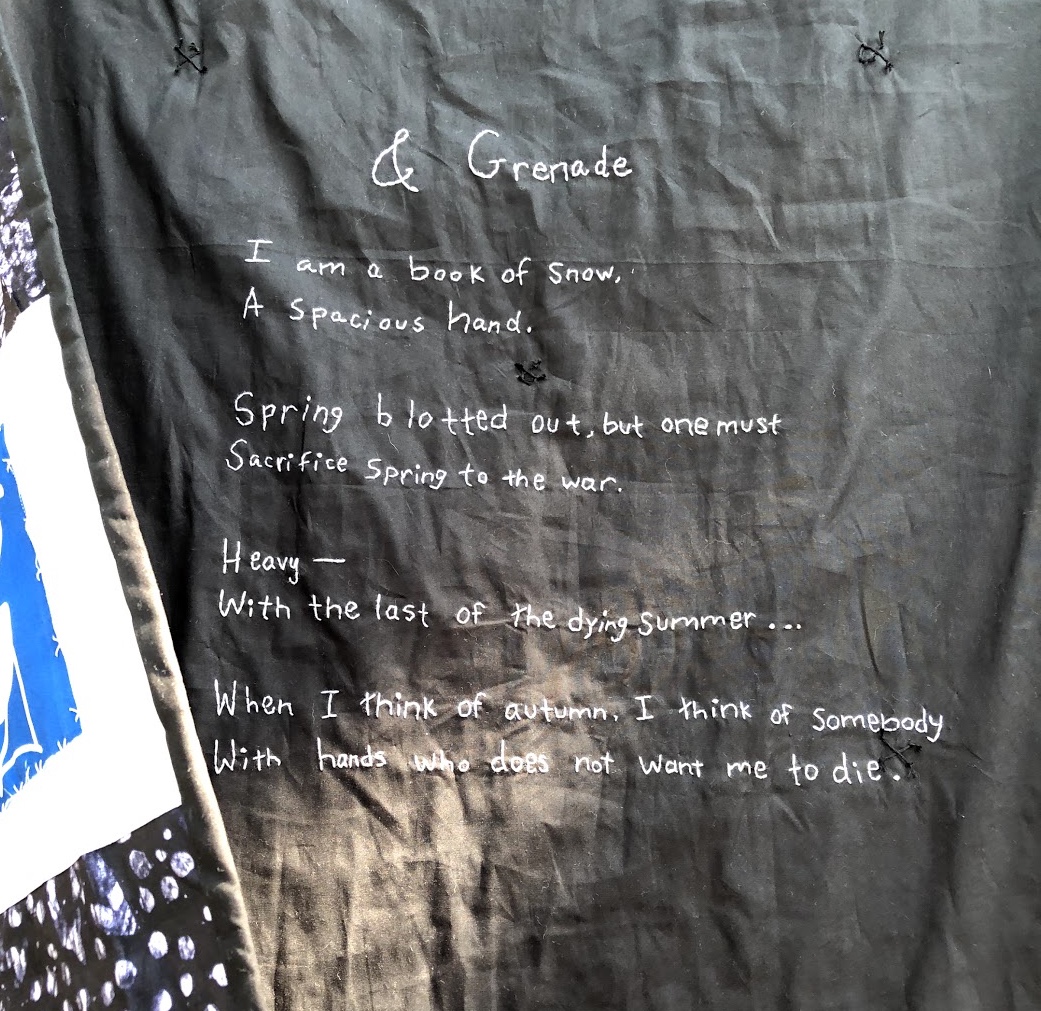 & Grenade
I am a book of snow,
A spacious hand.
Spring blotted out, but one must
Sacrifice Spring to the war.
Heavy —
With the last of the dying summer ...
When I think of autumn, I think of somebody
With hands who does not want me to die.